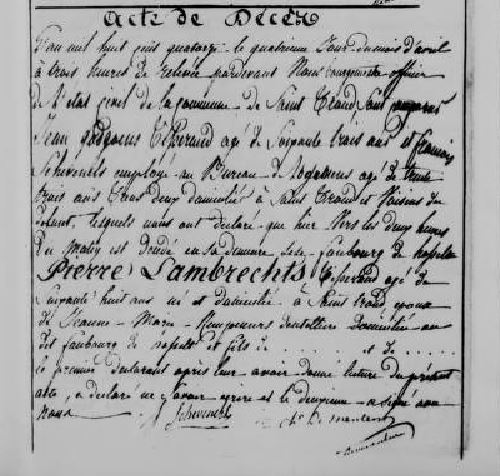 Acte de Décèz
L'an mil huit cent quatorze le quatrieme Jour du mois d'avril
à trois heures de relevée pardevant Nous bourguemestre officier
de L'état civil de la commune de Saint Trond sont comparus
Jean Tisserand agé de Soixante trois ans et francois
Schevenels employé au Bureau de agé de trente
trois ans tous deux domiciliés à Saint Trond et Voisins du
defunt, lesquels nous ont declaré que hier Vers les deux heures
du Matin est decedé en sa demeure faubourg de
Pierre Lambrechts Tisserand agé de
Soixante huit ans né et domicilié à Saint Trond epoux
de Jeanne - Marie - dentelliere Domiciliée au
dit faubourg de et fils de . . . . . et de . . . . .
le premier declarant après leur avoir donné lecture du présent
acte, a declaré ne savoir ecrire et le deuxieme a signé avec
nous